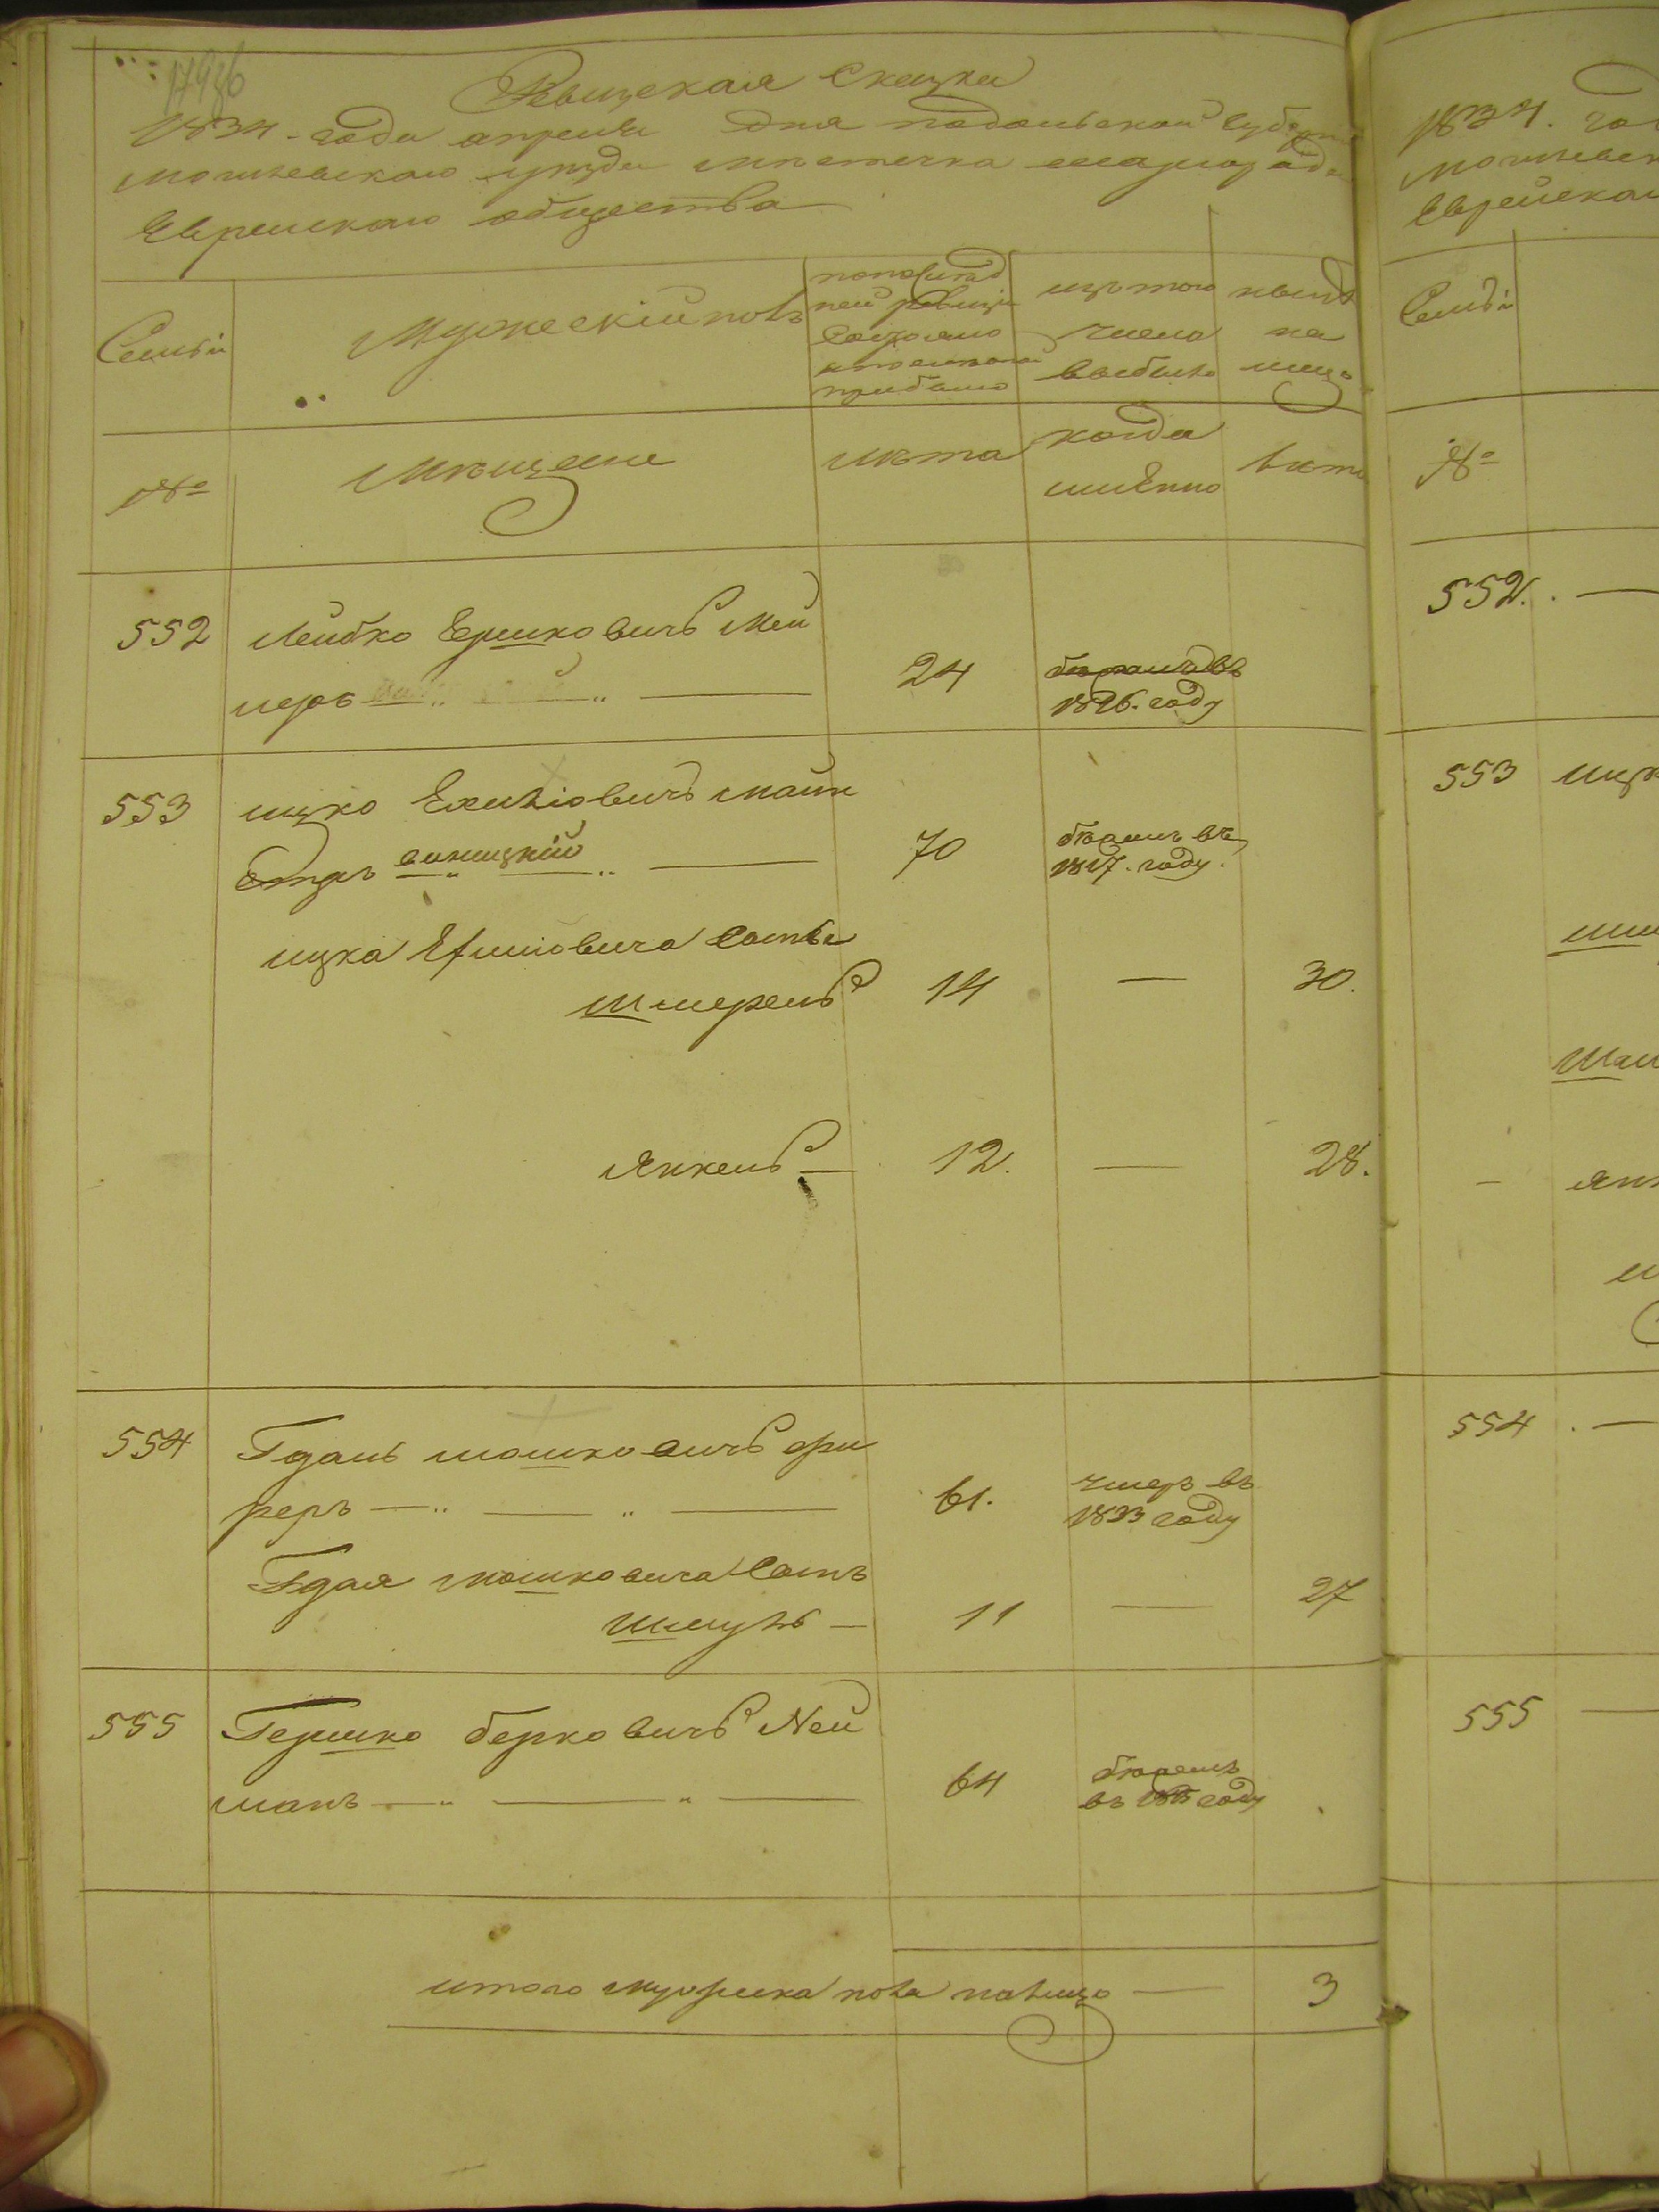 Ревизская Сказка
1834. года апреля дня подольской Губерн
могилевскаго уезда местечка шаргорода
Еврейскаго общества
Семьи
Мужескій полъ
по последней ревизіи состояло и после того прибыло
изъ того числа выбыло
ныне на лицо
№
Мещане
лета
когда именно
лета
552 Лейбко Ершковичъ Мей
неръ 24
1826. году
553 ицко майн
винницкій 70 беганъ въ
1817. году
ицка сынъ
шмерель 14 — 30.
Янкель — 12. — 28.
554 Гдаль мошковичъ фи
реръ 61. умеръ въ
1833 году
Гдаля мошковича Сынъ
шмуль — 11 — 27
555 Гершко берковичъ Ней
манъ 64
въ году
итого мужеска пола налицо — 3
1834. го
могилевск
Еврейскаг
Семьи
№
552. —
553 ицк
янк
554 . —
555 —